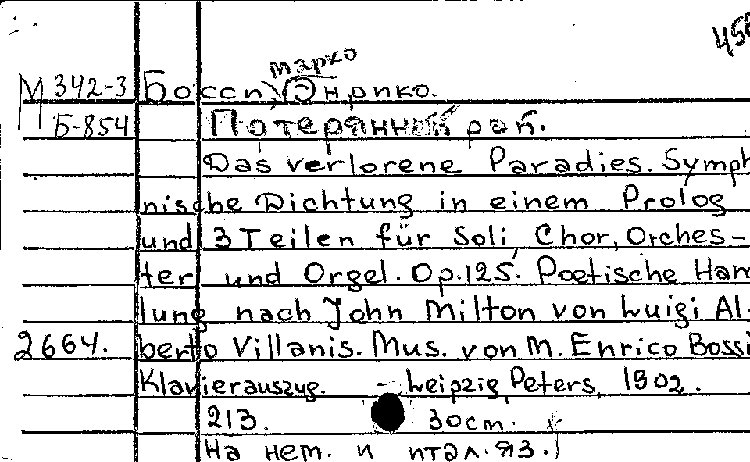 456
марко
М 342-3 Босси, Энрико.
Б-854 Потерянный рай.
Das verlorene Paradies. Symph
nische Dichtung in einem Prolog
und 3 Teilen für Soli, Chor, Orches-
ter und Orgel. Op.125. Poetische Han
lung nach John Milton von Luigi Al-
2664. berto Villanis. Mus. von M. Enrico Bossi
Klavierauszug. - Leipzig, Peters, 1902.
213. 30cm.
На нем. и итал. яз.)